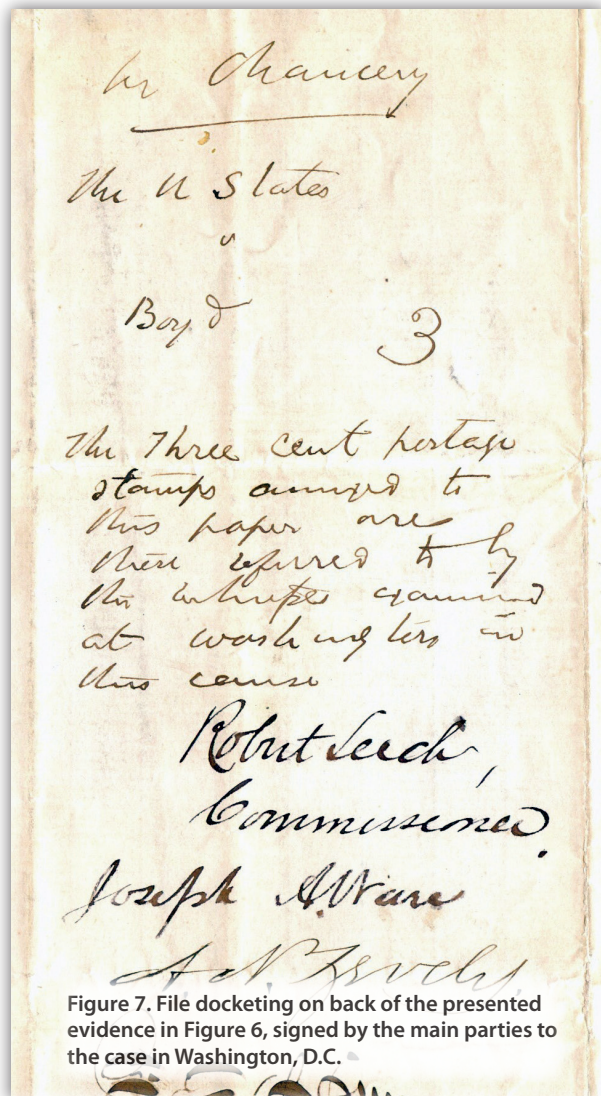 In Chancery
The U States
v
Boyd
3
The Three cent postage
stamps annexed to
this paper are
those referred to by
the witnesses examined
at Washington in
this cause
Robert Leech,
Commissioner.
Joseph A. Ware
A. N. Zevely
Figure 7. File docketing on back of the presented
evidence in Figure 6, signed by the main parties to
the case in Washington, D.C.